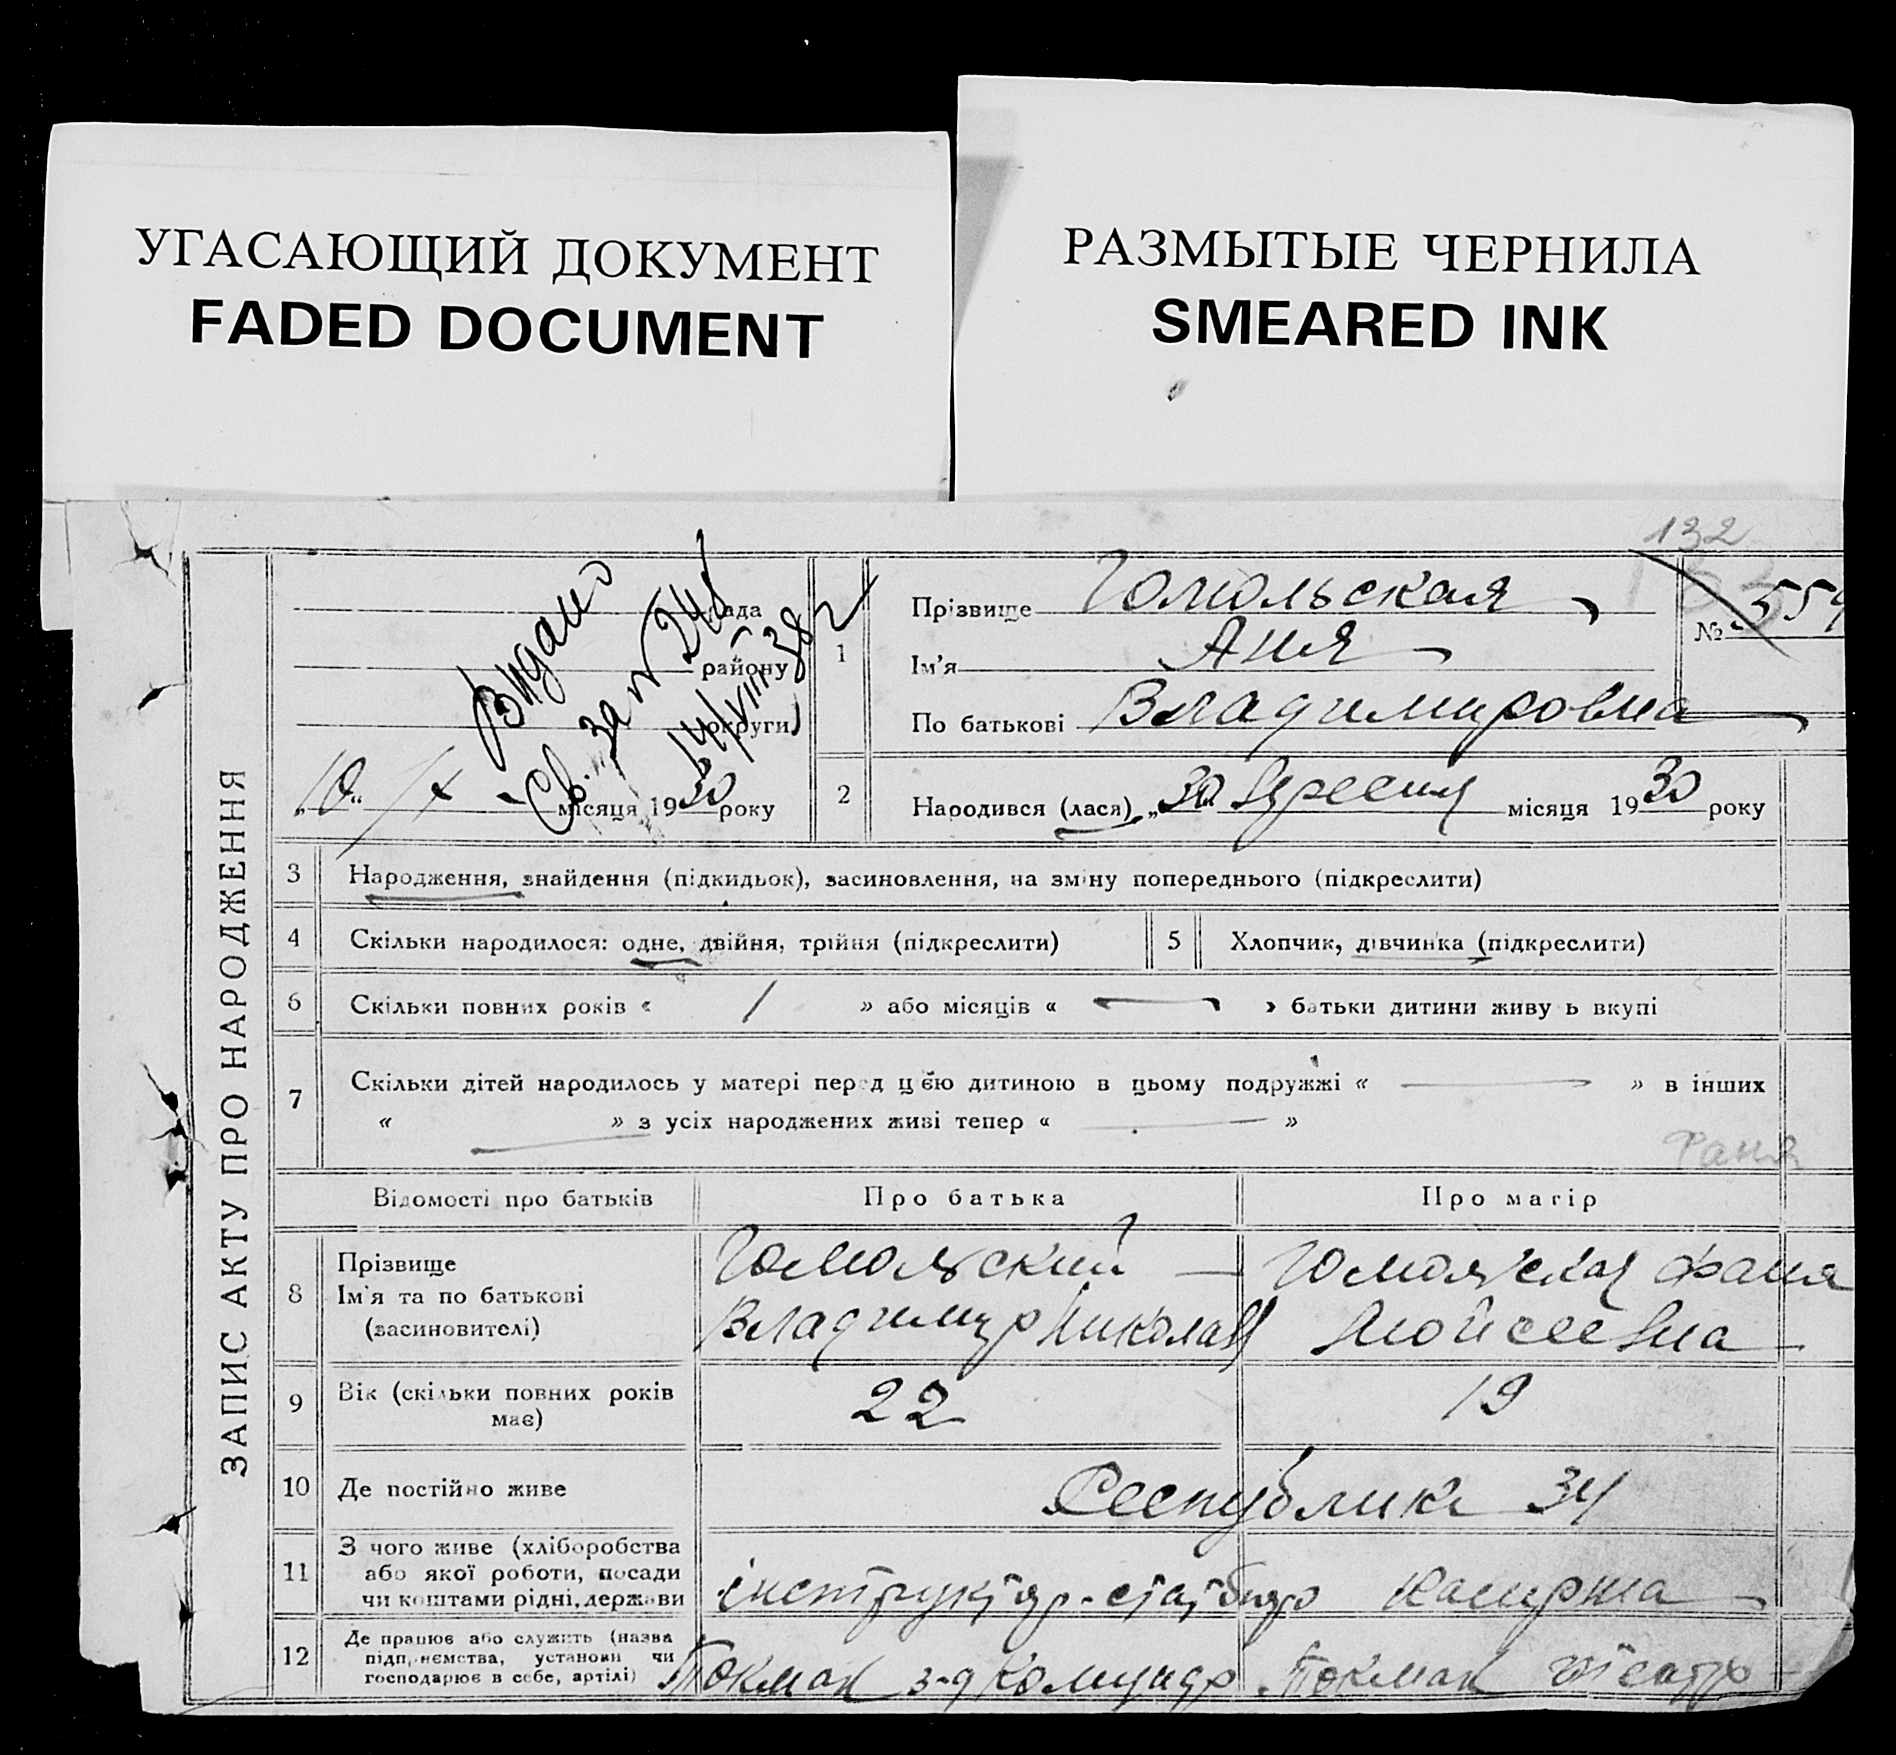 УГАСАЮЩИЙ ДОКУМЕНТ
FADED DOCUMENT
РАЗМЫТЫЕ ЧЕРНИЛА
SMEARED INK
132
ЗАПИС АКТУ ПРО НАРОДЖЕННЯ
рада
району
округи
Видано
Св.
14/VIII 38
10 " IX місяця 1930 року
1
Прізвище Гомольская
Ім'я Аня
По батькові Владимировна
№ 554
2
Народився (лася) „30" Вересня місяця 1930 року
3 Народження, знайдення (підкидьок), засиновлення, на зміну попереднього (підкреслити)
4 Скільки народилося: одне, двійня, трійня (підкреслити)
5 Хлопчик, дівчинка (підкреслити)
6 Скільки повних років « 1 » або місяців « — » батьки дитини живуть вкупі
7 Скільки дітей народилось у матері перед цією дитиною в цьому подружжі « — » в інших
« — » з усіх народжених живі тепер « — »
Фаня
Відомості про батьків
Про батька
Про матір
8
Прізвище
Ім'я та по батькові
(засиновителі)
Гомольский
Владимир Николаев
Гомольская Фаня
Мойсеевна
9
Вік (скільки повних років
має)
22
19
10 Де постійно живе
Республики 34
11
З чого живе (хліборобства
або якої роботи, посади
чи коштами рідні, держави
інструктор-статбюро
касирша
12
Де працює або служить (назва
підприємства, установи чи
господарює в себе, артілі)
Токмак з-д
Токмак театр